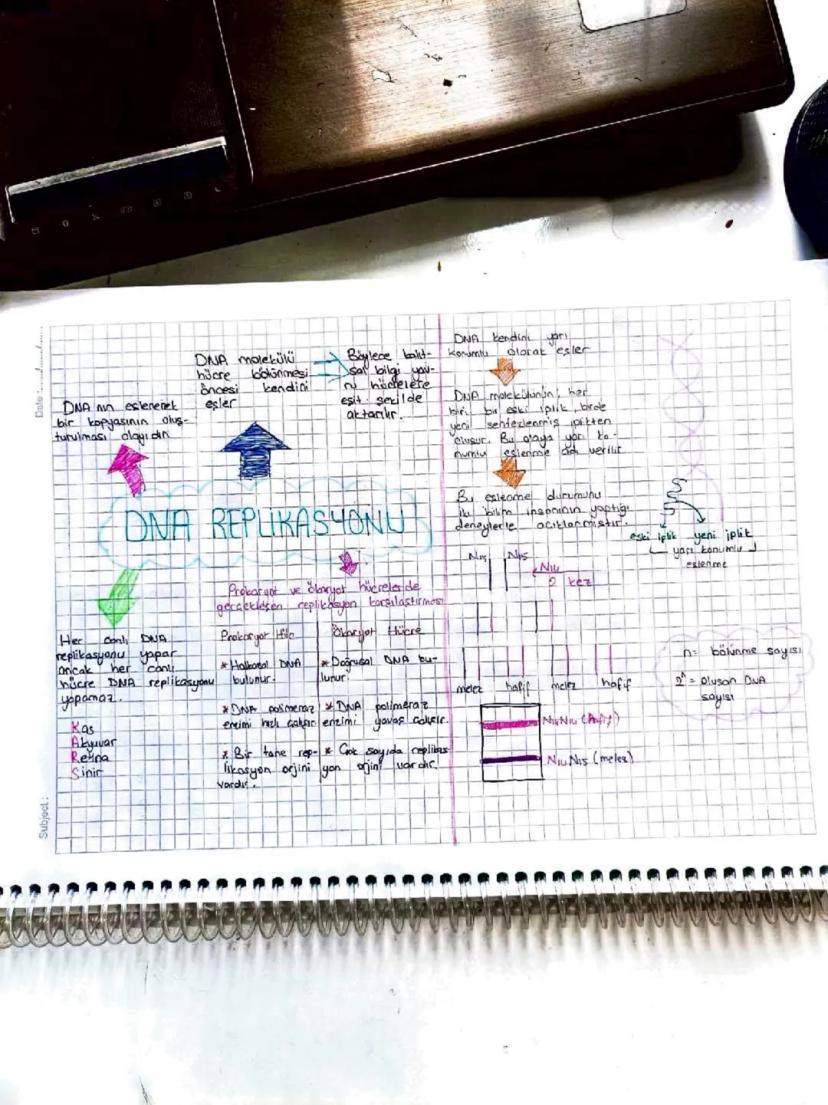 Date:
DNA'nın eşlenerek
bir kopyasının oluş-
turulması olayıdır.
DNA molekülü
hücre bölünmesi
öncesi kendini
eşler
Böylece kalıt-
sal bilgi yav-
ru hücrelere
eşit şekilde
aktarılır.
DNA REPLİKASYONU
Her canlı DNA
replikasyonu yapar
ancak her canlı
hücre DNA replikasyonu
yapamaz.
Kas
Akyuvar
Retina
Sinir
Prokaryot ve ökaryot hücrelerde
gerçekleşen replikasyon karşılaştırması
Prokaryot Hüc
* Halkasal DNA
bulunur.
* DNA polimeraz
enzimi hızlı çalışır
* Bir tane rep-
likasyon orjini
vardır.
Ökaryot Hücre
* Doğrusal DNA bu-
lunur.
* DNA polimeraz
enzimi yavaş çalışır.
* Çok sayıda replikas
yon orjini vardır.
DNA kendini yarı
korunumlu olarak eşler
DNA molekülünün; her
biri bir eski iplik, birde
yeni sentezlenmiş iplikten
oluşur. Bu olaya yarı ko-
numlu eşlenme adı verilir
Bu eşlenme durumunu
iki bilim insanının yaptığı
deneylerle açıklanmıştır.
eski iplik yeni iplik
yarı konumlu
eşlenme
N15 N15
N14
2 kez
melez hafif melez hafif
N14N14 (hafif)
N14N15 (melez)
n= bölünme sayısı
2ⁿ = oluşan DNA
sayısı
Subject: